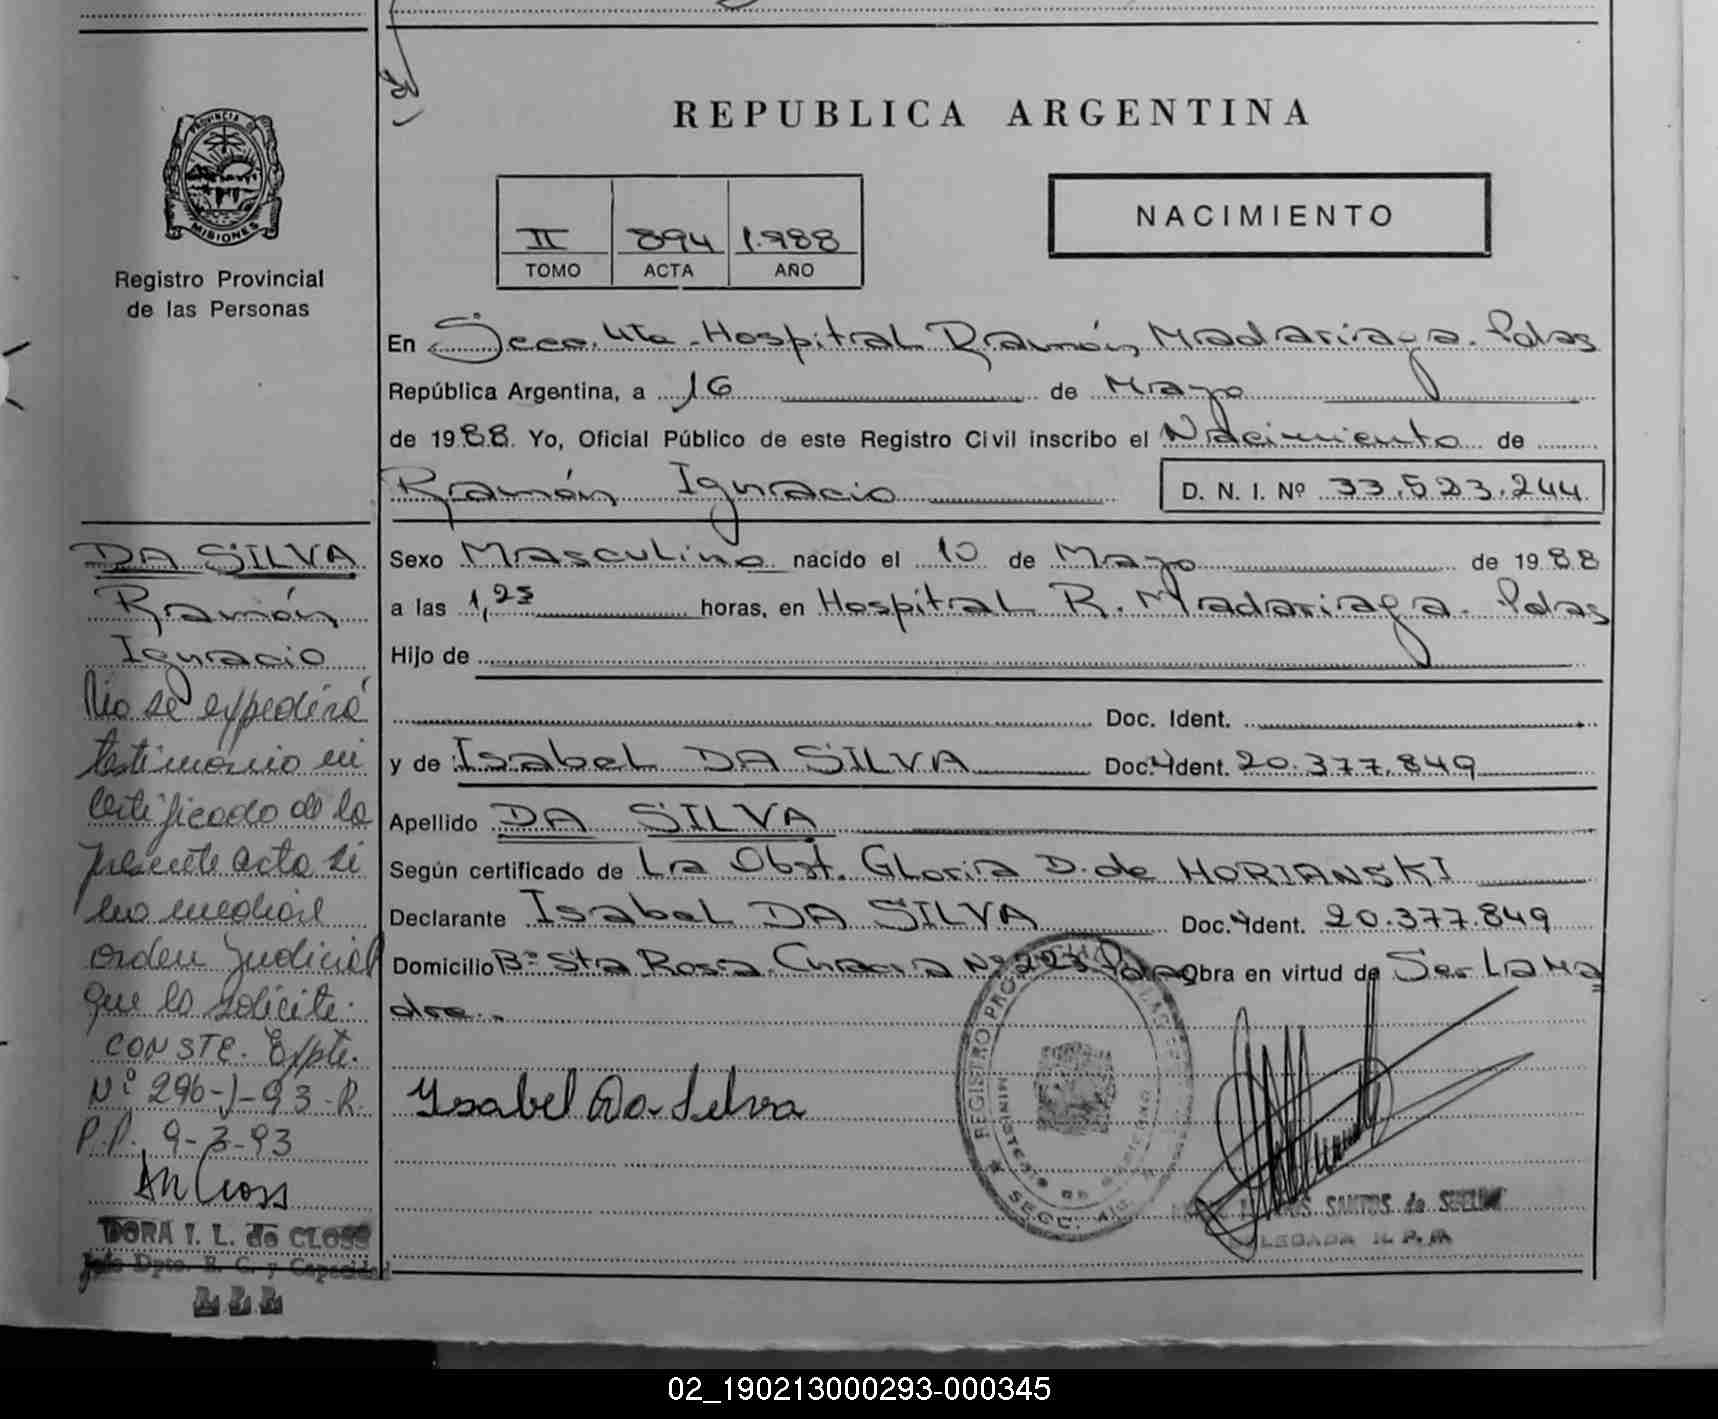 REPUBLICA ARGENTINA
PROVINCIA DE
MISIONES
Registro Provincial
de las Personas
NACIMIENTO
II 894 1.988
TOMO ACTA AÑO
En Secc. 4ta. Hospital Ramón Madariaga. Pdas
República Argentina, a 16 de Mayo
de 1988. Yo, Oficial Público de este Registro Civil inscribo el Nacimiento de
Ramón Ignacio D. N. I. Nº 33.523.244
Sexo Masculino nacido el 10 de Mayo de 1988
a las 1,25 horas, en Hospital R. Madariaga. Pdas
Hijo de
Doc. Ident.
y de Isabel DA SILVA Doc. Ident. 20.377.849
Apellido DA SILVA
Según certificado de La Obst. Gloria D. de HORIANSKI
Declarante Isabel DA SILVA Doc. Ident. 20.377.849
Domicilio Bº Sta Rosa Chacra Nº 223 Pdas Obra en virtud de Ser La Ma
dre.
Ysabel Da Silva
DA SILVA
Ramón
Ignacio
No se expedirá
testimonio ni
certificado de la
presente acta si
no mediare
orden judicial
que lo solicite.
CONSTE. Expte.
Nº 296-J-93-R.
P.P. 9-3-93
DORA I. L. de CLOSS
Jefe Dpto. R. C. y Capacidad
SANTOS de
R. P. P.
02_190213000293-000345